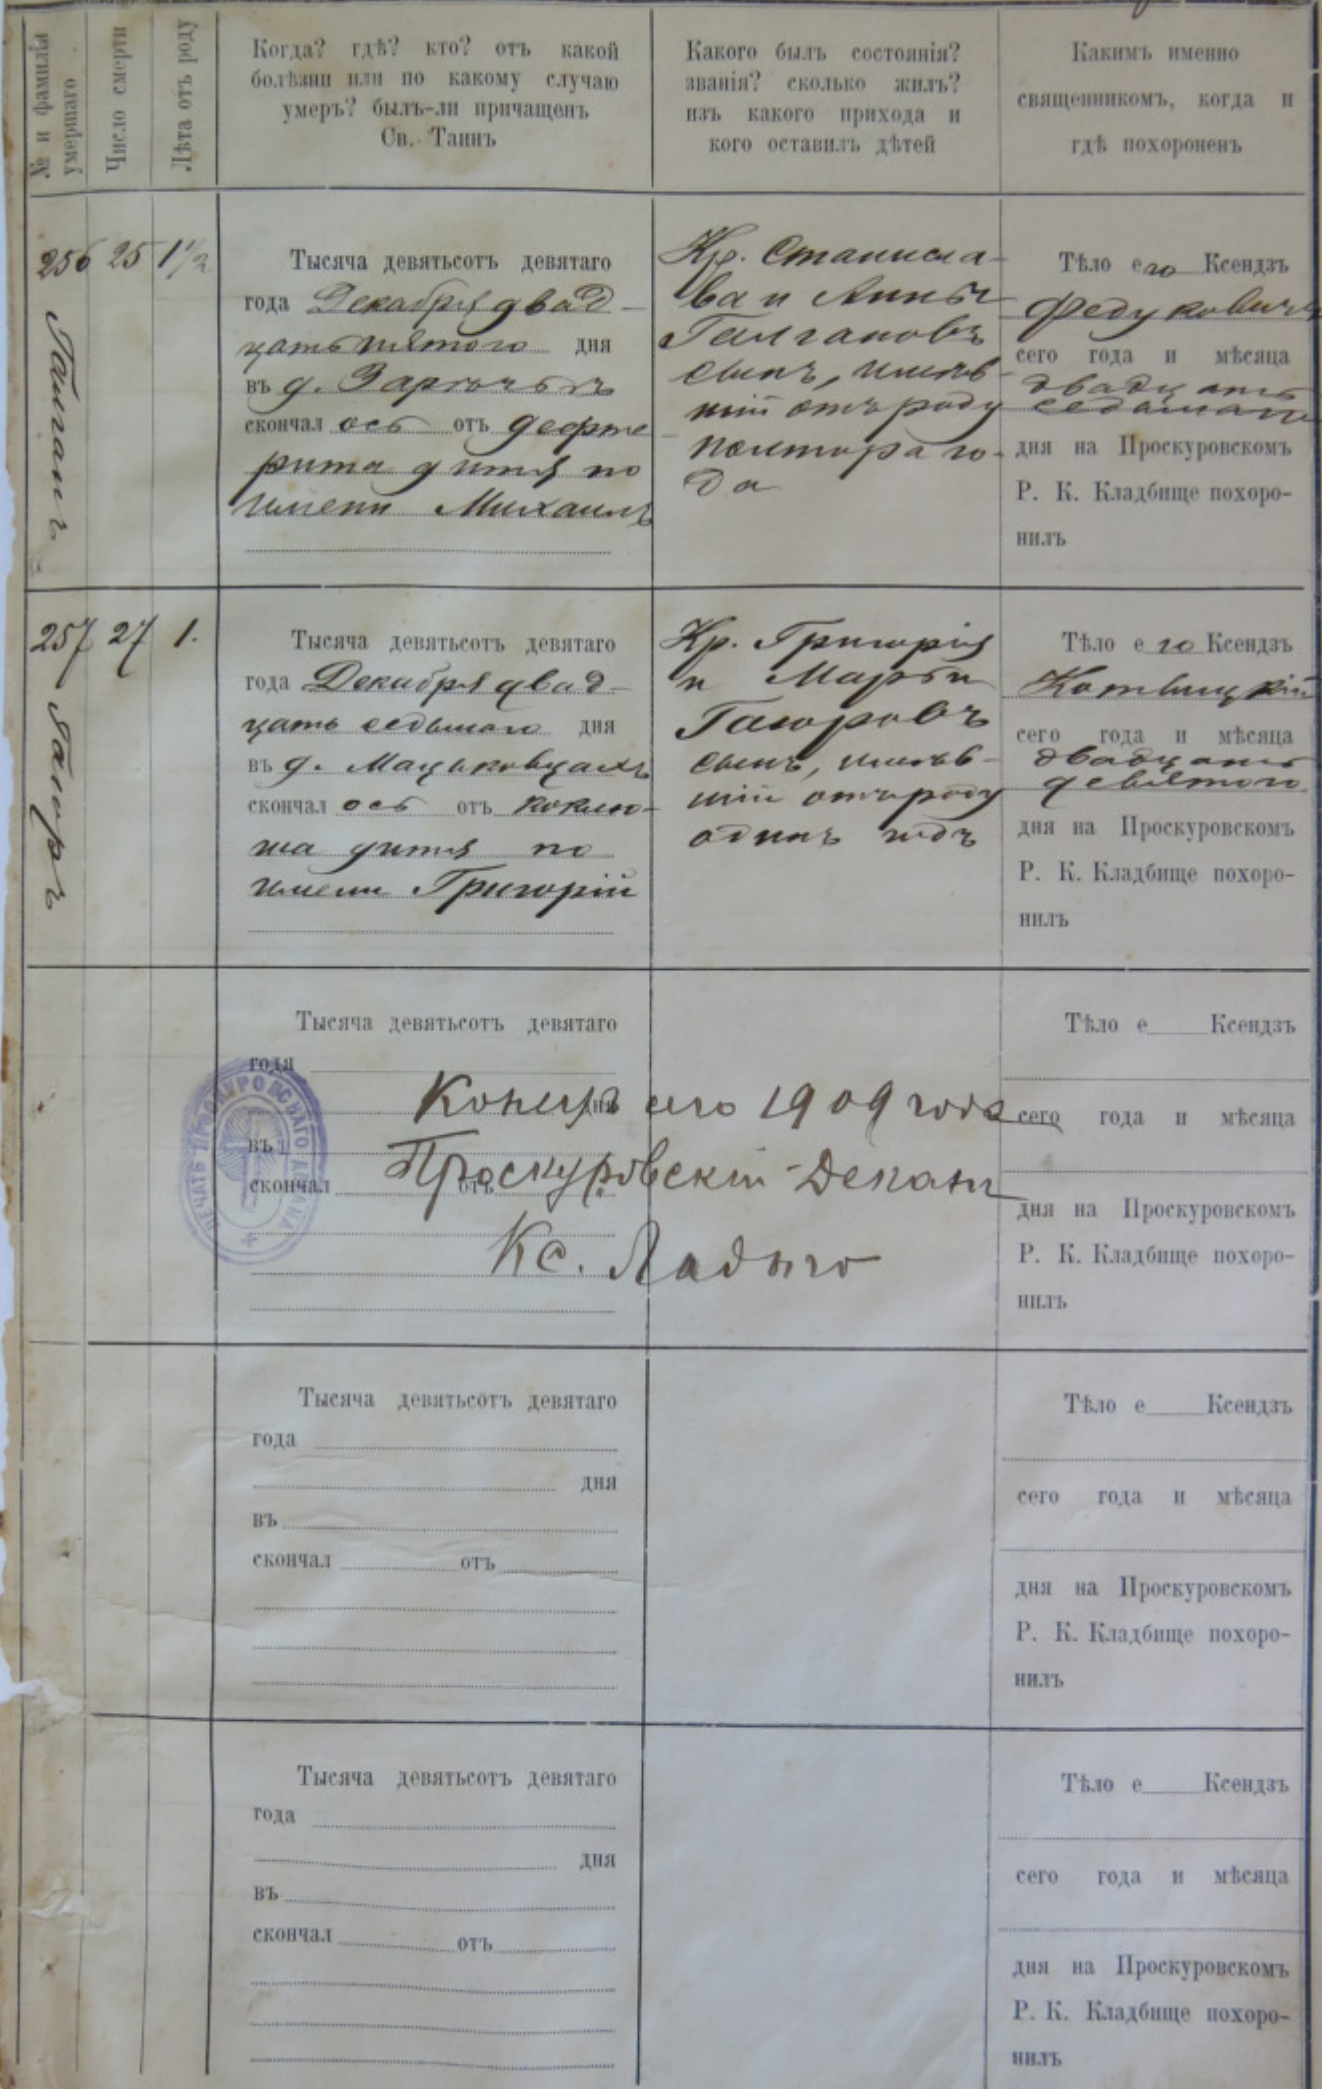 № и фамилія
умершаго
Число смерти
Лѣта отъ роду
Когда? гдѣ? кто? отъ какой
болѣзни или по какому случаю
умеръ? былъ-ли причащенъ
Св. Таинъ
Какого былъ состоянія?
званія? сколько жилъ?
изъ какого прихода и
кого оставилъ дѣтей
Какимъ именно
священникомъ, когда и
гдѣ похороненъ
256
Галганъ
25
1 1/2
Тысяча девятьсотъ девятаго
года Декабря двад-
цать пятого дня
въ д. Заречьѣ
скончал ось отъ дефте
рита дитя по
имени Михаилъ
Кр. Станисла-
ва и Анны
Галгановъ
сынъ, имѣв-
шій отъ роду
полтора го-
да
Тѣло его Ксендзъ
Федуковичъ
сего года и мѣсяца
двадцать
седьмаго
дня на Проскуровскомъ
Р. К. Кладбище похоро-
нилъ
257
27
1.
Тысяча девятьсотъ девятаго
года Декабря двад-
цать седьмаго дня
въ д. Мацьковцахъ
скончал ось отъ коклю-
ша дитя по
имени Григорій
Кр. Григорія
и Марьи
сынъ, имѣв-
шій отъ роду
одинъ годъ
Тѣло е го Ксендзъ
Котвицкій
сего года и мѣсяца
двадцать
девятого
дня на Проскуровскомъ
Р. К. Кладбище похоро-
нилъ
Тысяча девятьсотъ девятаго
года
дня
въ
скончал отъ
Конецъ сего 1909 года
Проскуровскій Деканъ
Кс. Ладыго
ПЕЧАТЬ ПРОСКУРОВСКАГО ДЕКАНА
Тѣло е Ксендзъ
сего года и мѣсяца
дня на Проскуровскомъ
Р. К. Кладбище похоро-
нилъ
Тысяча девятьсотъ девятаго
года
дня
въ
скончал отъ
Тѣло е Ксендзъ
сего года и мѣсяца
дня на Проскуровскомъ
Р. К. Кладбище похоро-
нилъ
Тысяча девятьсотъ девятаго
года
дня
въ
скончал отъ
Тѣло е Ксендзъ
сего года и мѣсяца
дня на Проскуровскомъ
Р. К. Кладбище похоро-
нилъ